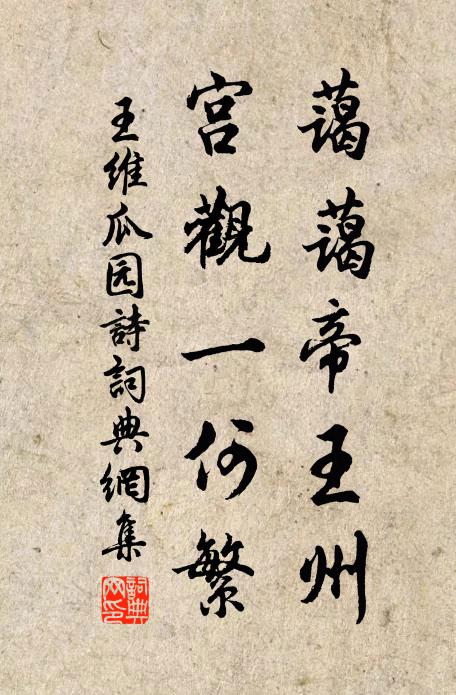 藹藹帝王州
宮觀一何繁
王維瓜园詩詞典網集
詞典网印